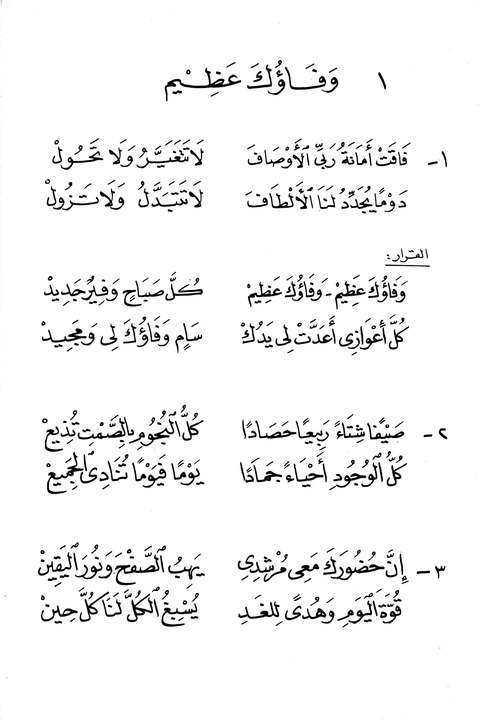 ١ وَفَاؤُكَ عَظِيْم
١- فَاقَتْ أَمَانَةُ رَبِّي الْأَوْصَافَ لَا تَتَغَيَّرُ وَلَا تَحُولْ
دَوْمًا يُجَدِّدُ لَنَا الْأَلْطَافَ لَا تَتَبَدَّلُ وَلَا تَزُولْ
القرار:
وَفَاؤُكَ عَظِيْمْ - وَفَاؤُكَ عَظِيْمْ كُلَّ صَبَاحٍ وَفِيرٌ جَدِيدْ
كُلَّ أَعْوَازِي أَعَدَّتْ لِي يَدُكْ سَامٍ وَفَاؤُكَ لِي وَمَجِيدْ
٢- صَيْفًا شِتَاءً رَبِيعًا حَصَادًا كُلُّ النُّجُومِ بِالصَّمْتِ تُذِيعْ
كُلُّ الْوُجُودِ أَحْيَاءً جَمَادًا يَوْمًا فَيَوْمًا تُنَادِي الْجَمِيعْ
٣- إِنَّ حُضُورَكَ مَعِي مُرْشِدِي يَهِبُ الصَّفْحَ وَنُورَ الْيَقِينْ
قُوَّةَ الْيَوْمِ وَهُدًى لِلْغَدِ يُسْبِغُ الْكُلَّ لَنَا كُلَّ حِينْ